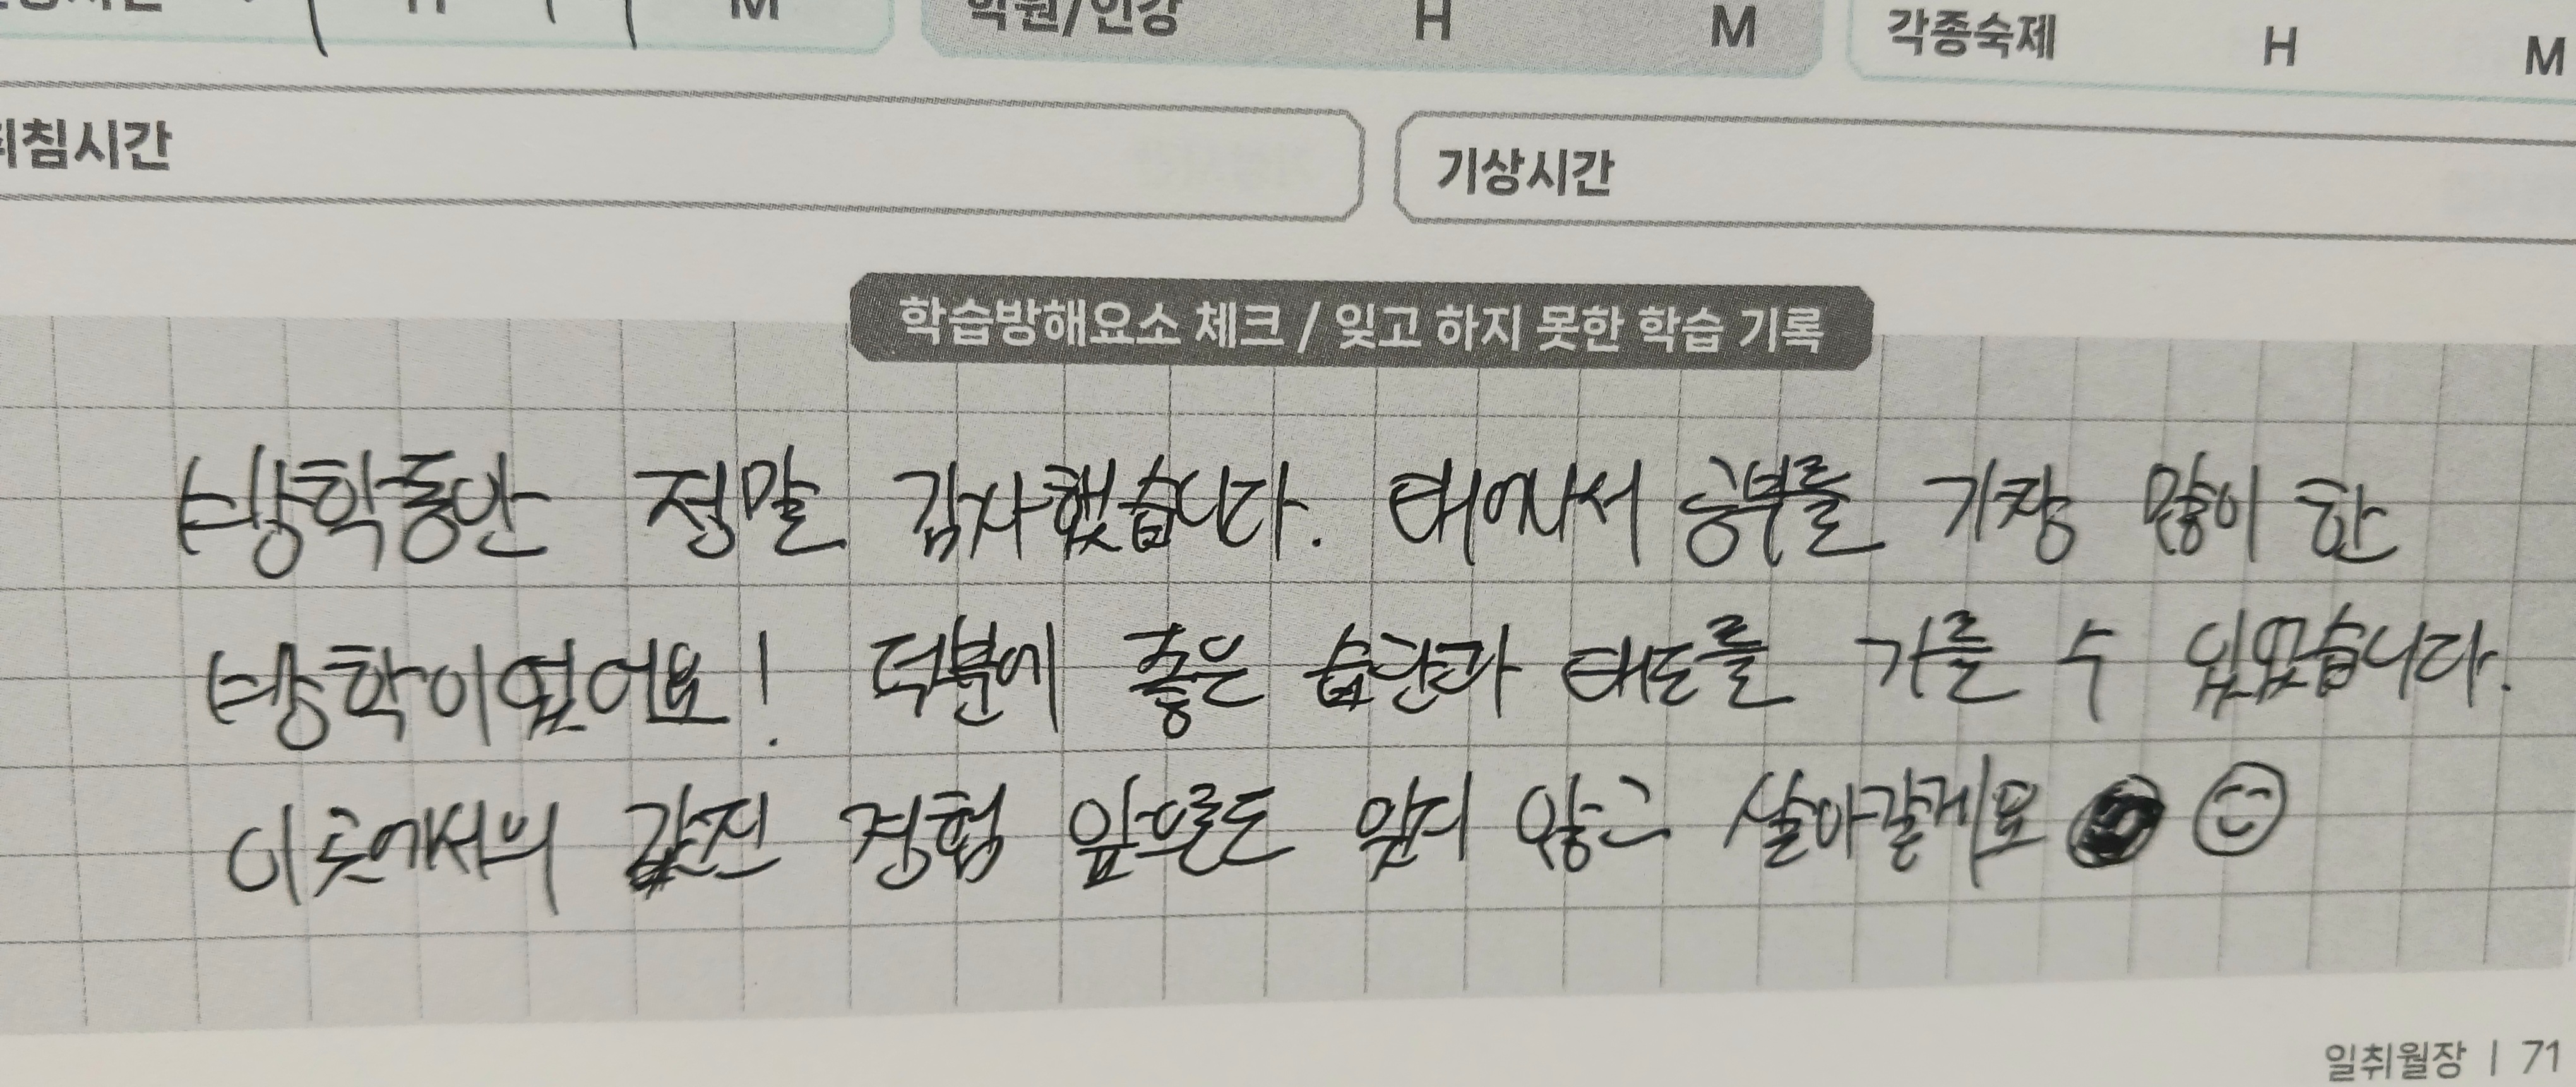 학원/인강 H M 각종숙제 H M
취침시간 기상시간
학습방해요소 체크 / 잊고 하지 못한 학습 기록
방학동안 정말 감사했습니다. 태어나서 공부를 가장 많이 한
방학이었어요! 덕분에 좋은 습관과 태도를 기를 수 있었습니다.
이곳에서의 값진 경험 앞으로도 잊지 않고 살아갈게요
일취월장 | 71